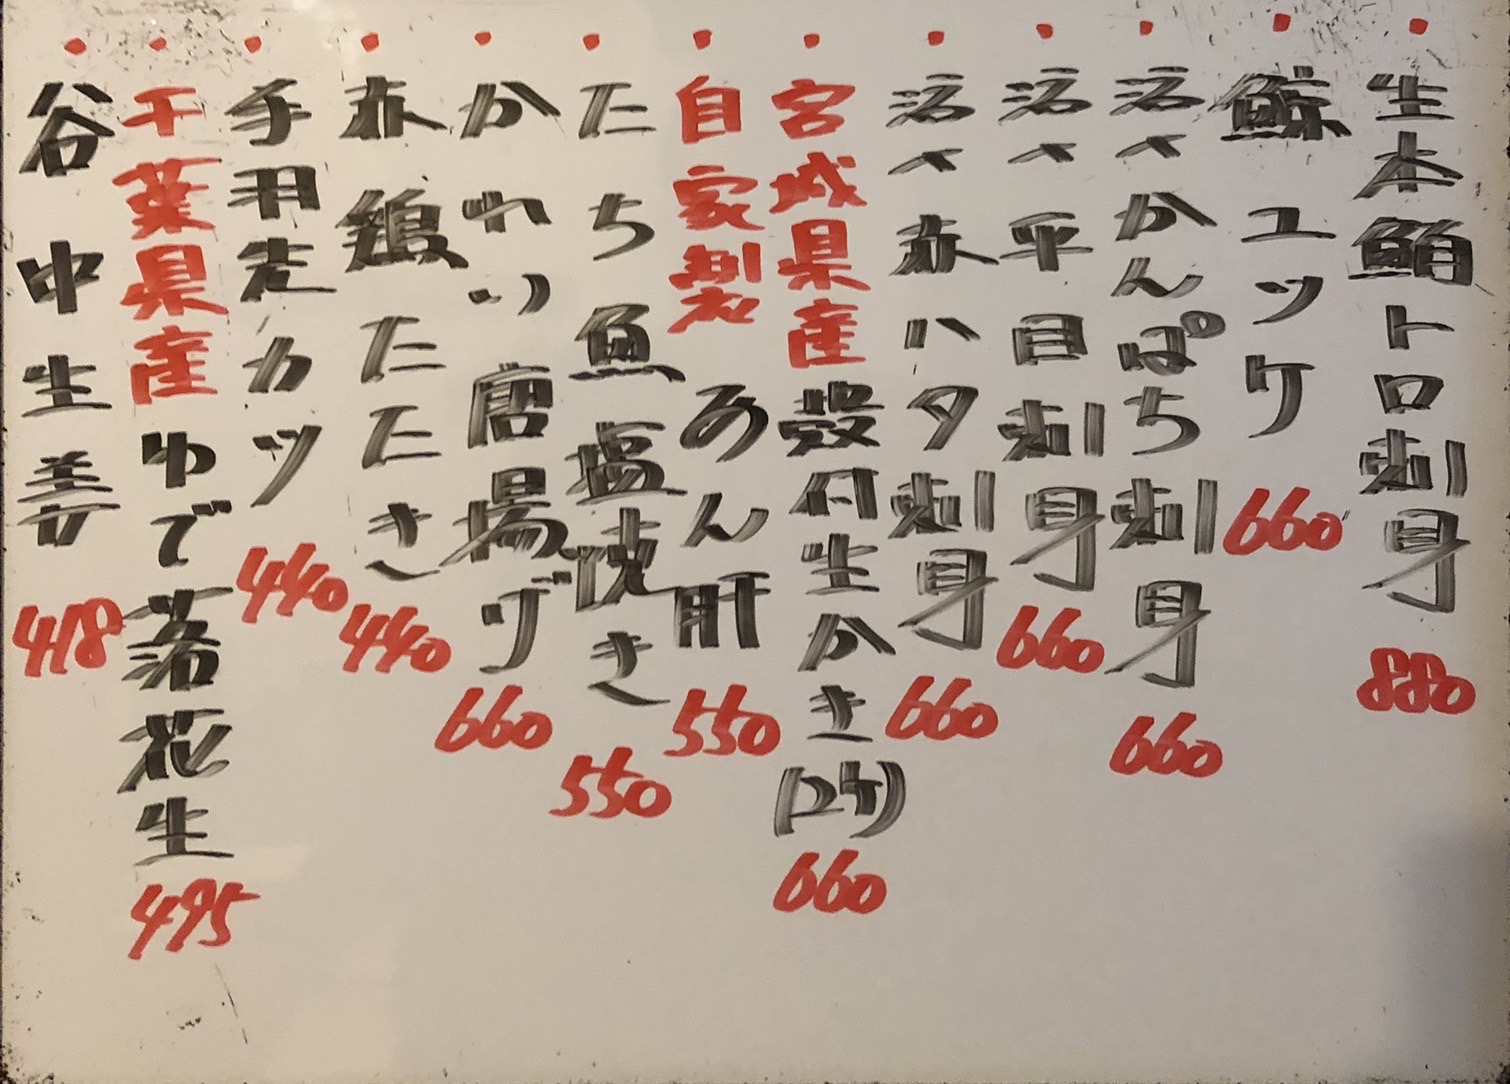 生本鮪トロ刺身 880
鯨ユッケ 660
活〆かんぱち刺身 660
活〆平目刺身 660
活〆赤ハタ刺身 660
宮城県産殻付生かき(2ケ) 660
自家製あん肝 550
たち魚塩焼き 550
かれい唐揚げ 660
赤鶏たたき 440
手羽先カツ 440
千葉県産ゆで落花生 495
谷中生姜 418